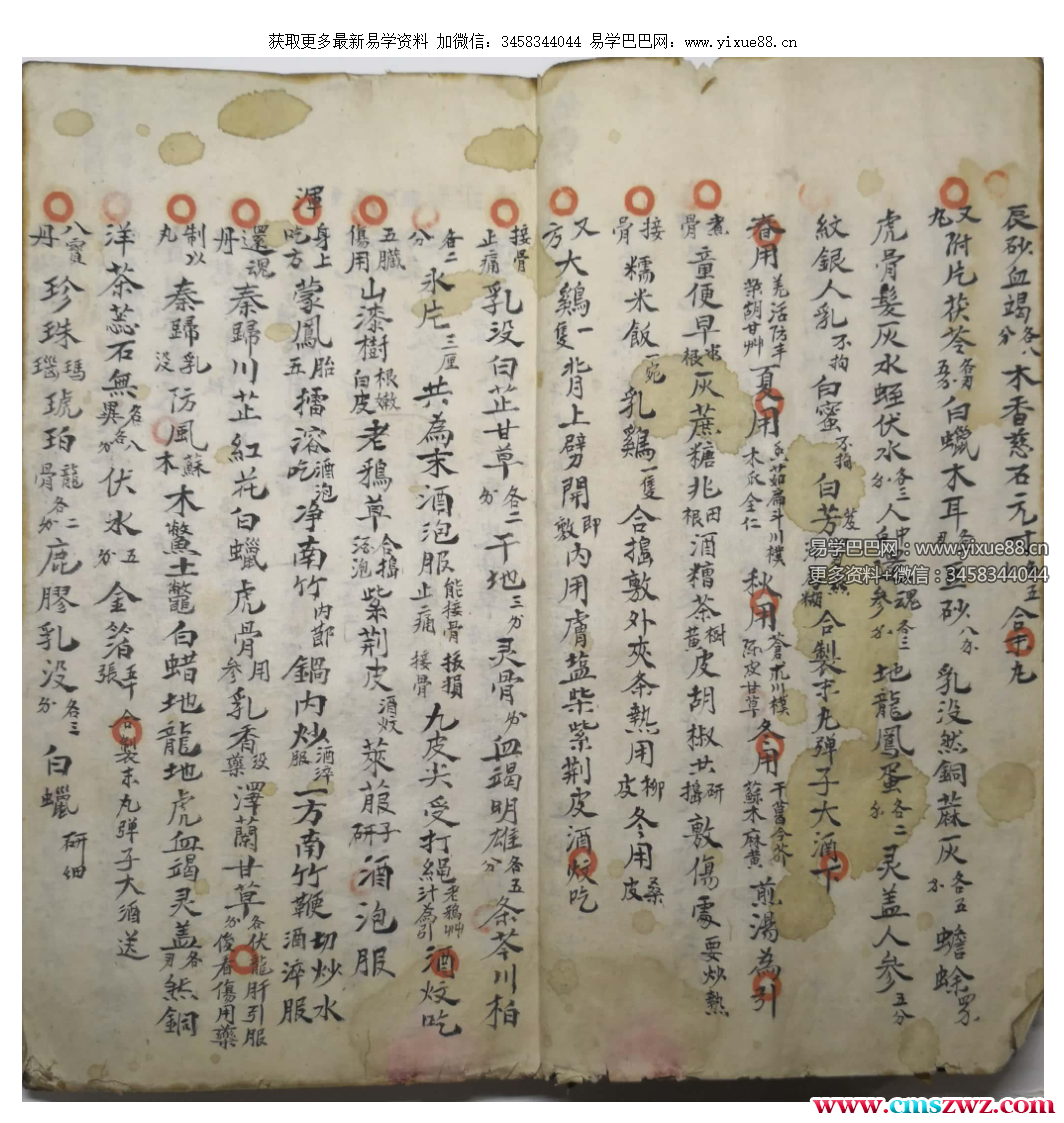 获取更多最新易学资料 加微信：3458344044 易学巴巴网：www.yixue88.cn
辰砂血竭各八分木香慈石元寸五合丸
又附片茯苓白蠟木耳砂八分乳没然銅蔴灰各五分蟾蜍
丸
虎骨髮灰水蛭伏水各三分人中魂各三分地龍鳳蛋各二分灵盖人参五分
紋銀人乳不拘白蜜不拘白芳合製末丸彈子大酒下
春用羌活防丰柴胡甘艸夏用秋用蒼朮川樸陈皮甘草冬用蘇木麻黄煎湯為引
煮骨童便早根灰蔗糖兆根酒糟茶黄樹皮胡椒共研搗敷傷處要炒熱
接骨糯米飯一碗乳鷄一隻合搗敷外夾条熱用柳皮冬用桑皮
又方大鷄一隻背上劈開即敷内用膚盐柴紫荆皮酒炆吃
接骨止痛乳没白芷甘草各二分干地三分灵骨分血竭明雄各五分条芩川柏
各二分氷片三厘共為末酒泡服能接骨止痛接骨九皮尖受打縄老鴉艸汁為引酒炆吃
五臟傷用山漆樹根嫩白皮老鴉草合搗酒泡紫荆皮酒炆萊菔子研酒泡服
渾身上吃方蒙鳳胎五擂溶酒泡吃净南竹内節鍋内炒酒淬服一方南竹鞭切炒水酒淬服
還魂丹秦歸川芷紅花白蠟虎骨用参乳香没藥澤蘭甘草各分伏龍肝引服後看傷用藥
制以丸秦歸乳没防風蘇木木鱉土鱉白蜡地龍地虎血竭灵盖各然銅
洋茶蕊石無異各八分伏水五分金箔五十張合製末丸彈子大酒送
八寶丹珍珠瑪瑙琥珀龍骨各二分鹿膠乳没各三分白蠟研细
易学巴巴网：www.yixue88.cn
更多资料+微信：3458344044
www.cmszwz.com